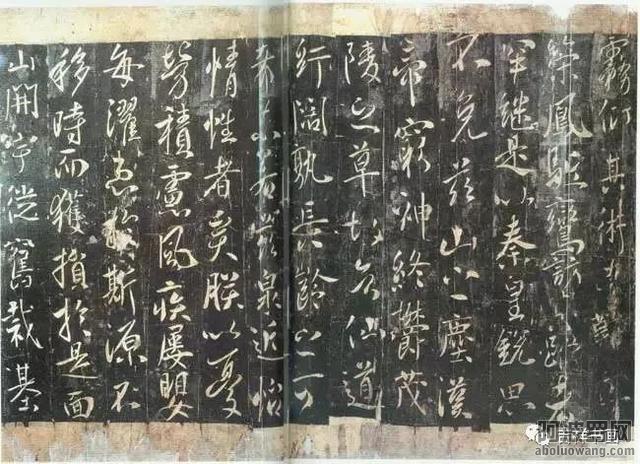 霧仰其術者難
鳳駐鸞歌
罕繼是以秦皇銳思
不免茲山之塵漢
帝窮神終鬱茂
陵之草故知仙道
紆闊孰長齡之可
茲泉近怡
情性者矣朕以憂
勞積慮風疾屢嬰
每濯患於斯源不
移時而獲損於是面
山開宇從舊裁基
阿波罗网
aboluowang.com